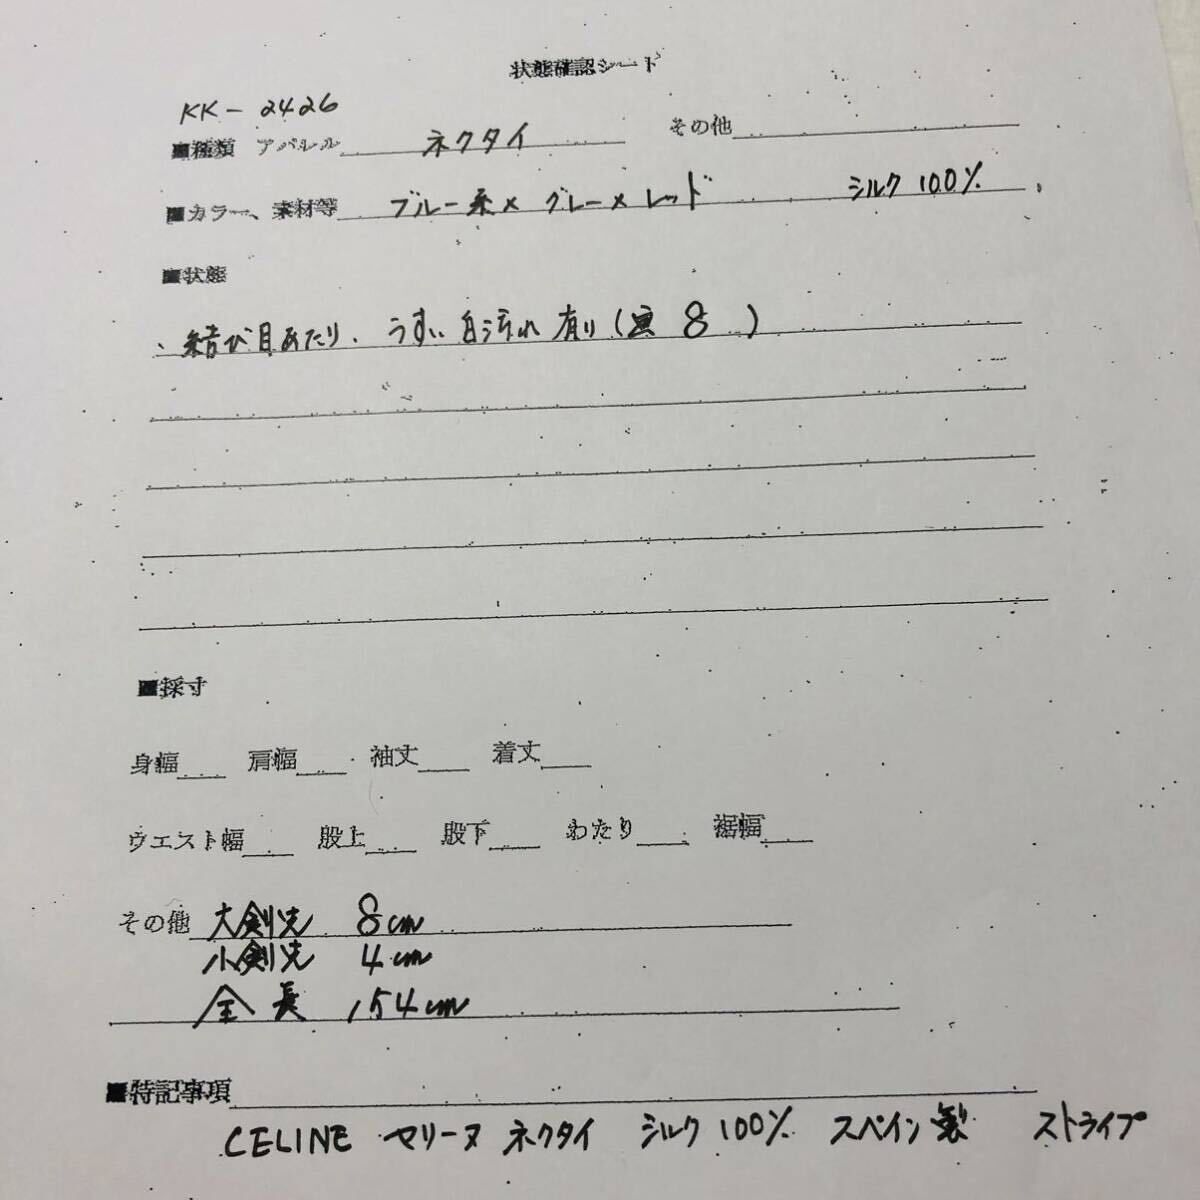 状態確認シート
KK-2426
■種類 アパレル ネクタイ その他
■カラー、素材等 ブルー系×グレー×レッド シルク100%
■状態
・結び目あたり、うすい白汚れ有り( 8 )
■採寸
身幅 肩幅 袖丈 着丈
ウエスト幅 股上 股下 わたり 裾幅
その他 大剣先 8cm
小剣先 4cm
全長 154cm
■特記事項
CELINE セリーヌ ネクタイ シルク100% スペイン製 ストライプ